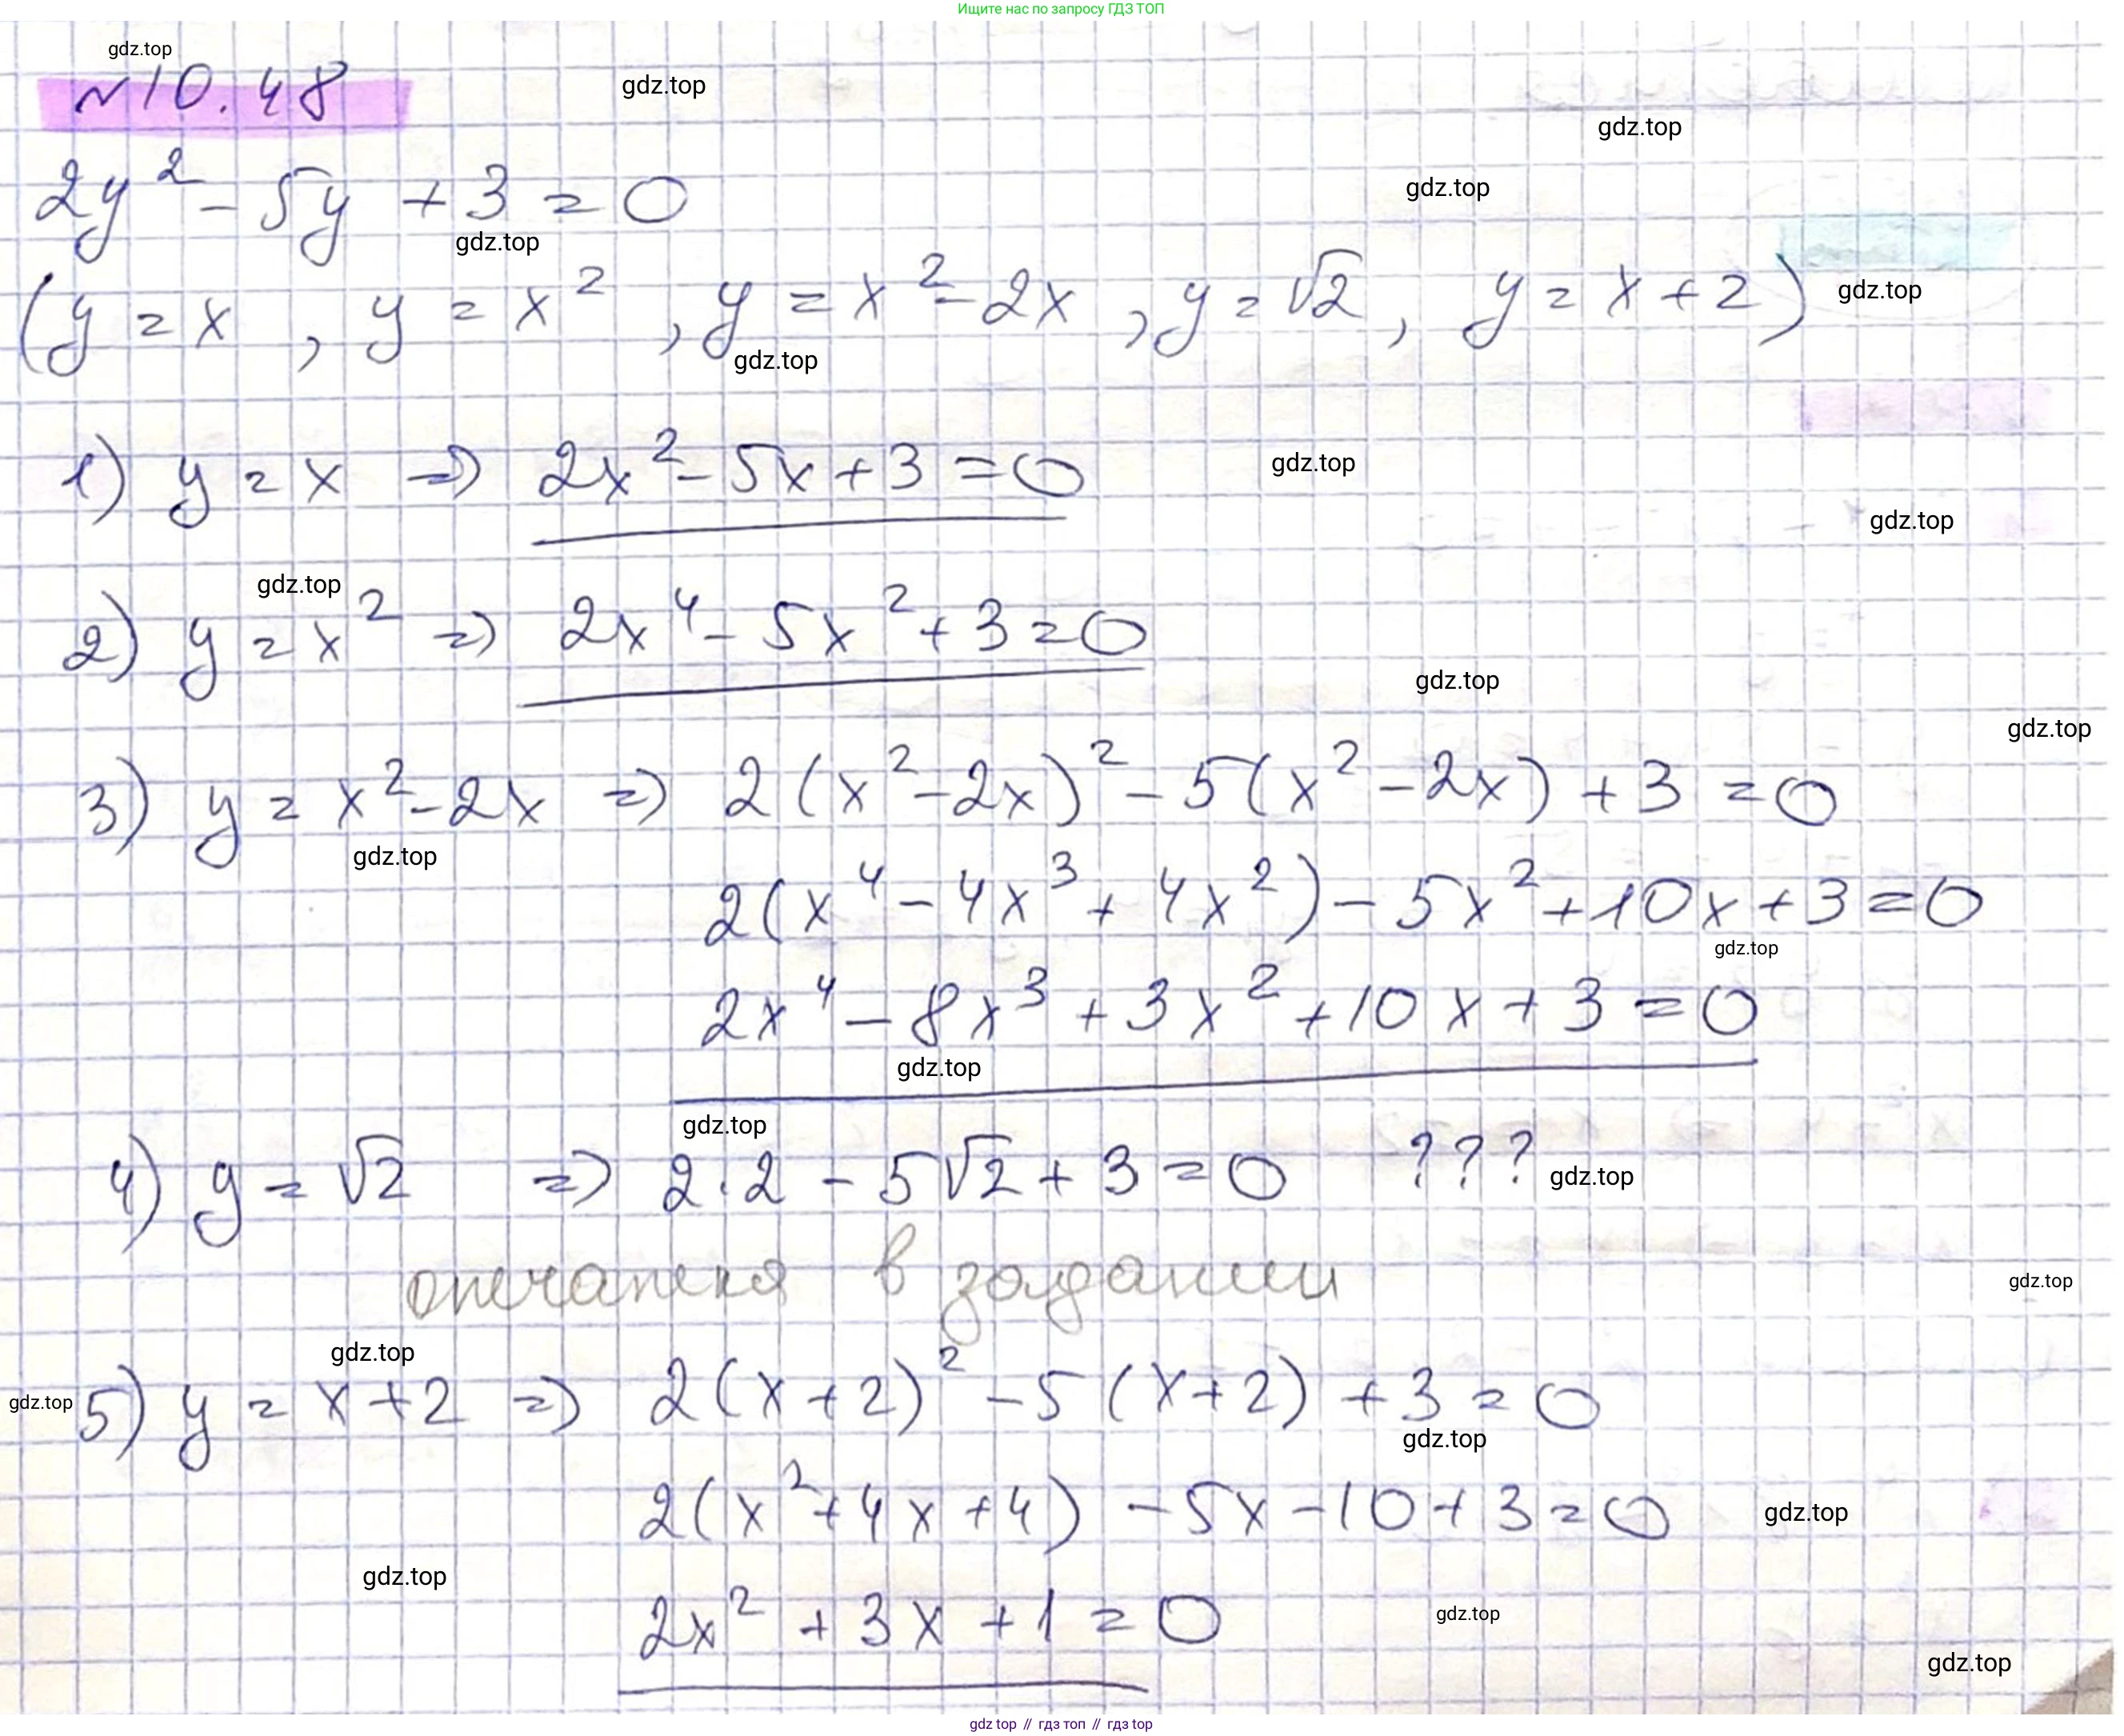 Ищите нас по запросу ГДЗ ТОП
gdz.top
№10.48
gdz.top
gdz.top
gdz.top
2y² - 5y + 3 = 0
gdz.top
(y = x , y = x² , y = x² - 2x , y = √2 , y = x + 2)
gdz.top
gdz.top
1) y = x => 2x² - 5x + 3 = 0
gdz.top
gdz.top
gdz.top
2) y = x² => 2x⁴ - 5x² + 3 = 0
gdz.top
gdz.top
3) y = x² - 2x => 2(x² - 2x)² - 5(x² - 2x) + 3 = 0
gdz.top
2(x⁴ - 4x³ + 4x²) - 5x² + 10x + 3 = 0
gdz.top
2x⁴ - 8x³ + 3x² + 10x + 3 = 0
gdz.top
gdz.top
4) y = √2 => 2·2 - 5√2 + 3 = 0 ???
gdz.top
опечатка в задании
gdz.top
gdz.top
gdz.top
5) y = x + 2 => 2(x + 2)² - 5(x + 2) + 3 = 0
gdz.top
2(x² + 4x + 4) - 5x - 10 + 3 = 0
gdz.top
gdz.top
2x² + 3x + 1 = 0
gdz.top
gdz.top
gdz top // гдз топ // гдз top